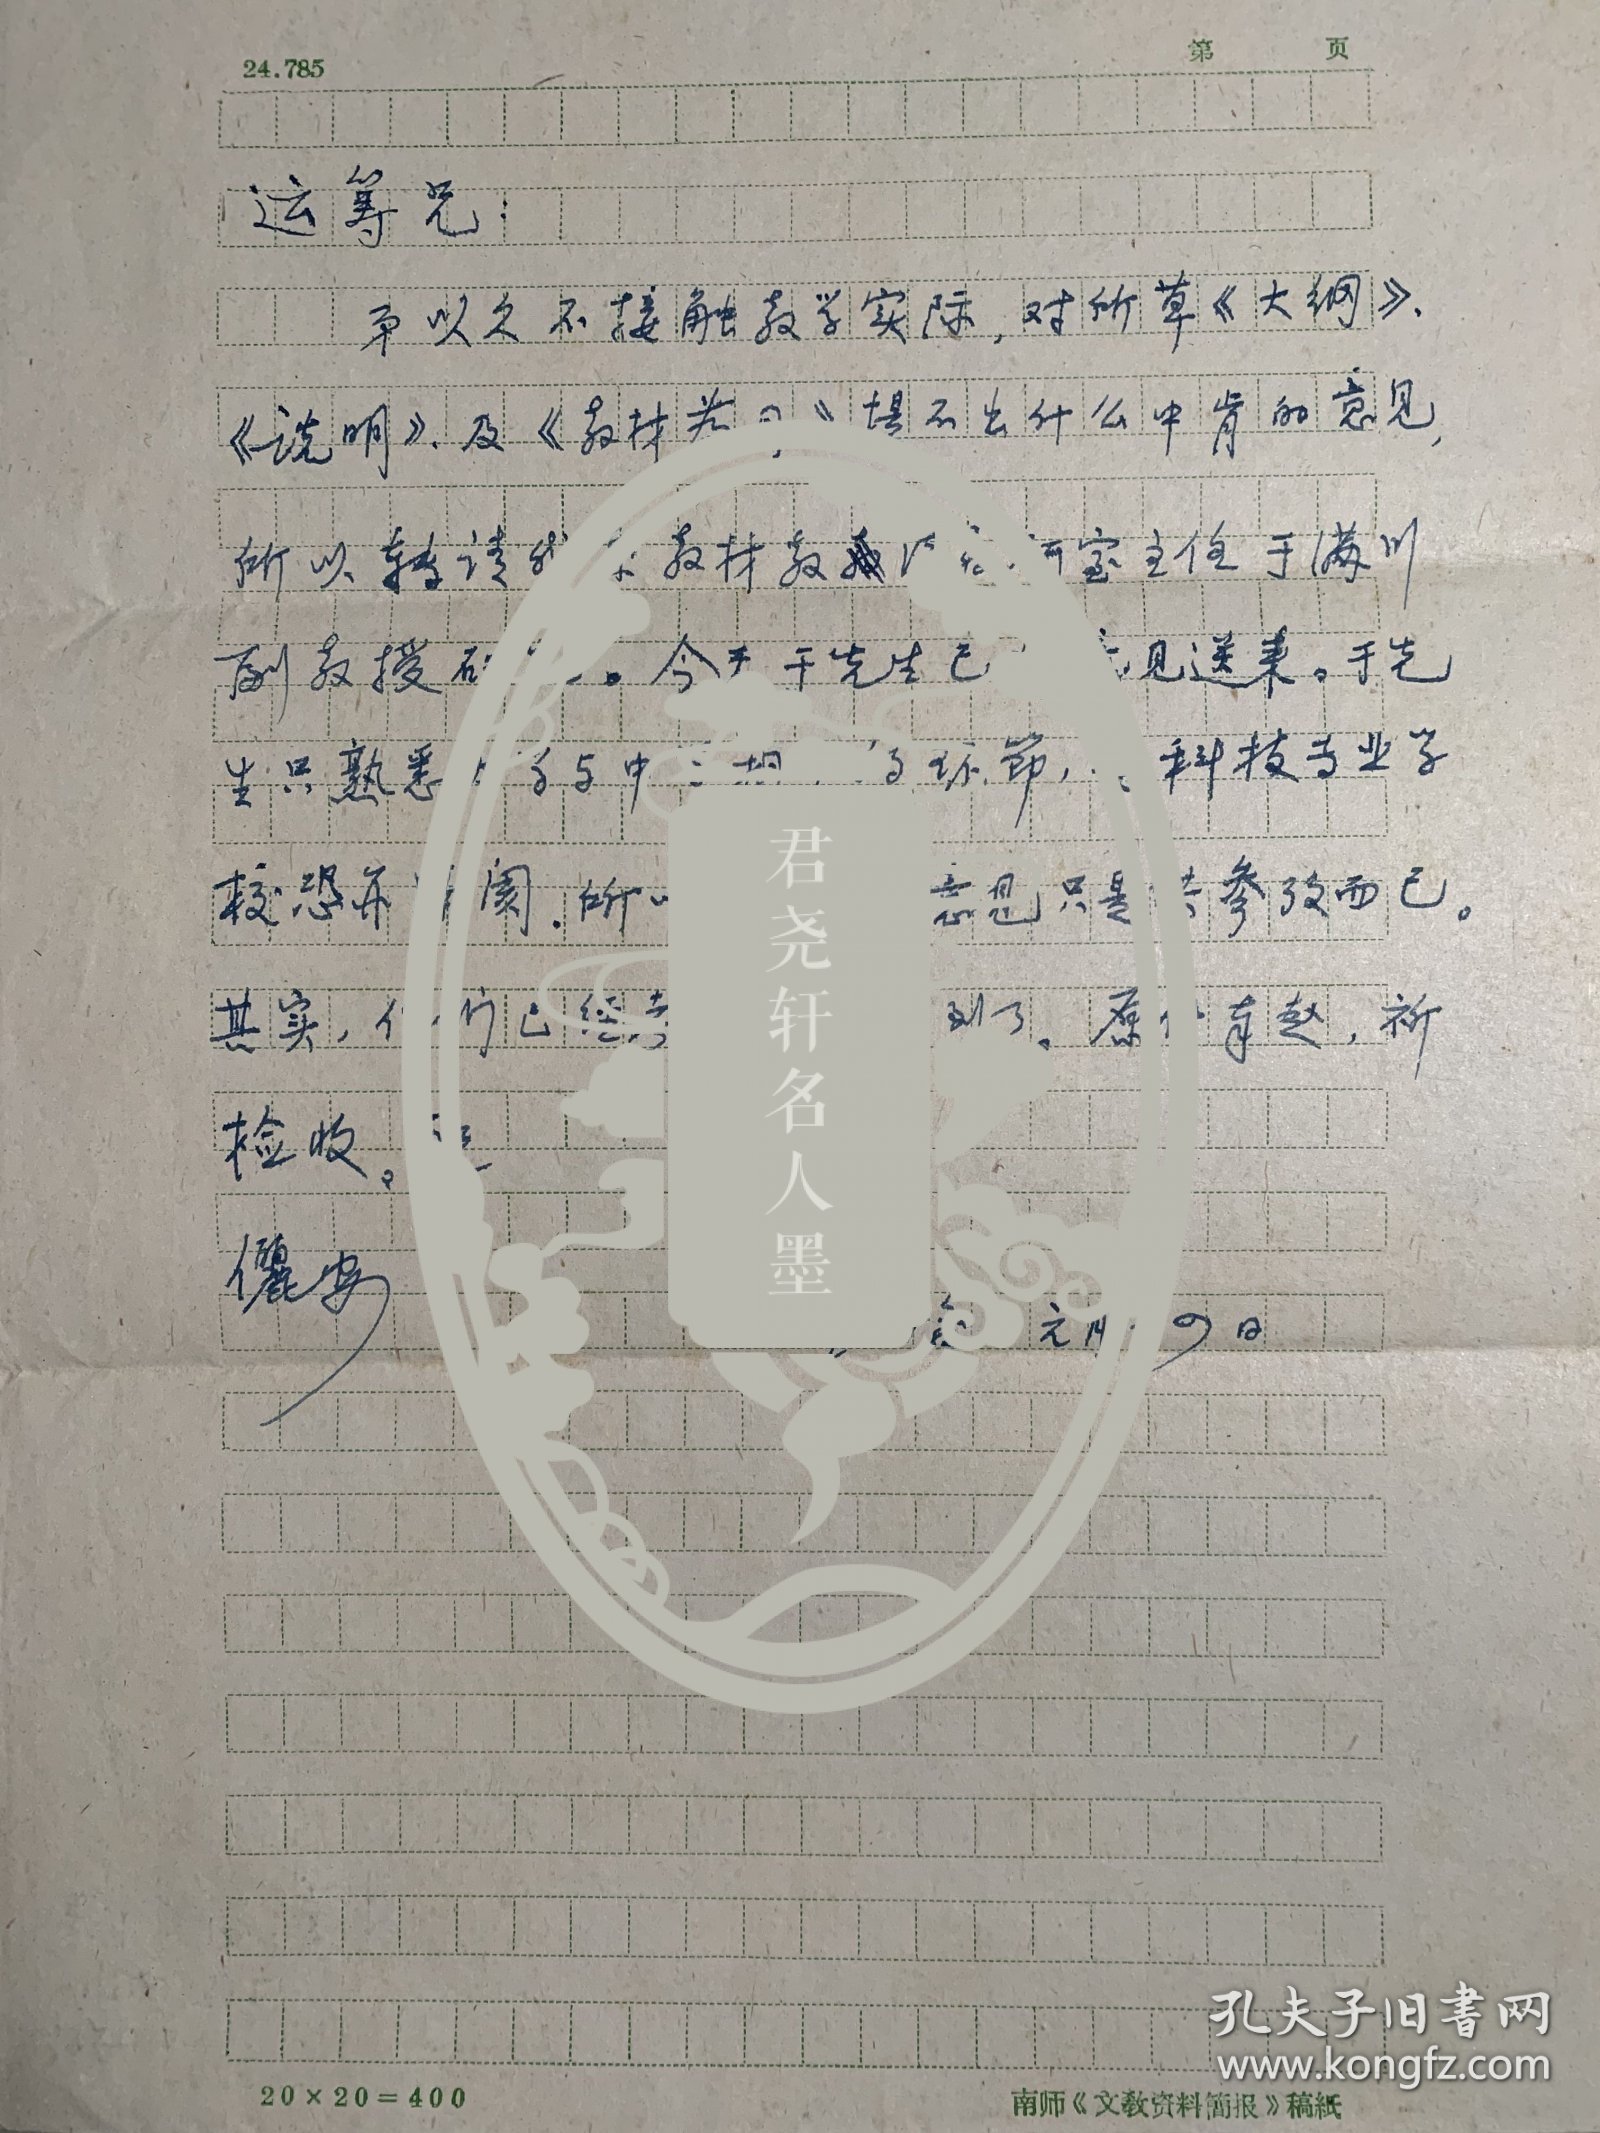 24.785 第 页
运筹兄:
弟以久不接触教学实际,对所草《大纲》、
《说明》、及《教材 》提不出什么中肯的意见,
所以转请 教材教 室主任于满川
副教授 。今天于先生已 意见送来。于先
生只熟悉 与中 环节, 科技专业学
校恐亦 阂.所以 意见只是供参考而已。
其实, 们已经 到了。原 奉赵,祈
检收。
俪安
元月 9日
君尧轩名人墨
孔夫子旧书网
www.kongfz.com
20×20=400 南师《文教资料简报》稿纸